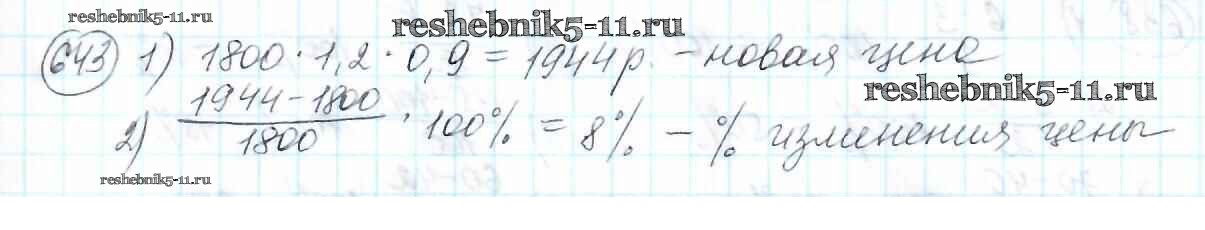 reshebnik5-11.ru
reshebnik5-11.ru
643 1) 1800 · 1,2 · 0,9 = 1944 р. – новая цена
reshebnik5-11.ru
2) (1944 – 1800)/1800 · 100% = 8% – % изменения цены
reshebnik5-11.ru